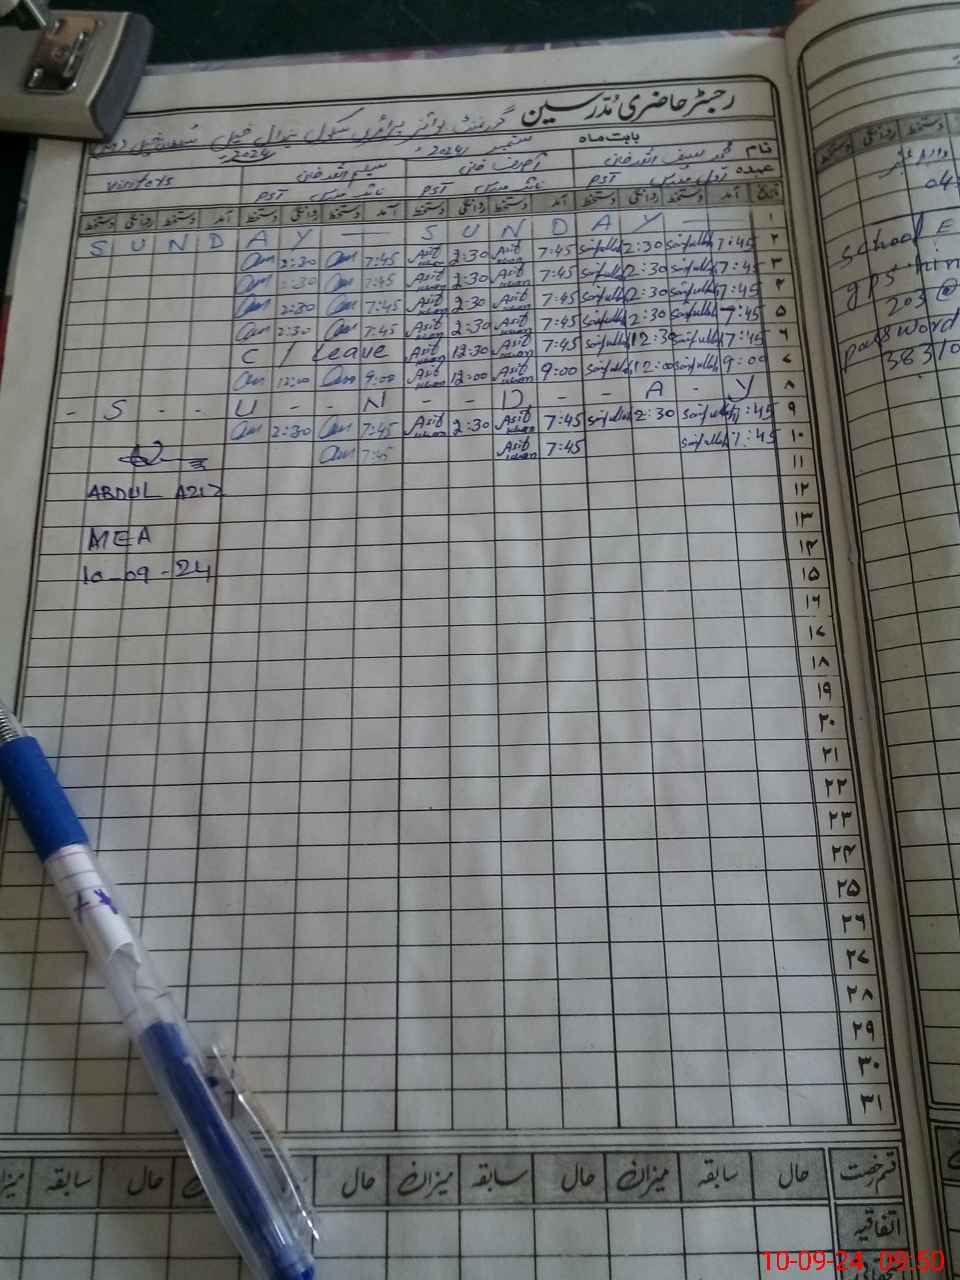 رجسٹر حاضری مدرسین
گورنمنٹ بوائز پرائمری سکول
بابت ماہ ستمبر 2024
نام محمد سیف اللہ خان آصف خان سلیم اللہ خان
عہدہ PST PST PST visitors
تاریخ آمد دستخط روانگی دستخط آمد دستخط روانگی دستخط آمد دستخط روانگی دستخط آمد دستخط روانگی دستخط
۱ S U N D A Y — S U N D A Y —
۲ 7:45 Saifullah 2:30 Saifullah 7:45 Asif khan 2:30 Asif khan 7:45 2:30
۳ 7:45 Saifullah 2:30 Saifullah 7:45 Asif khan 2:30 Asif khan 7:45 2:30
۴ 7:45 Saifullah 2:30 Saifullah 7:45 Asif khan 2:30 Asif khan 7:45 2:30
۵ 7:45 Saifullah 2:30 Saifullah 7:45 Asif khan 2:30 Asif khan 7:45 2:30
۶ 7:45 Saifullah 12:30 Saifullah 7:45 Asif khan 12:30 Asif khan C / Leave
۷ 9:00 Saifullah 12:00 Saifullah 9:00 Asif khan 12:00 Asif khan 9:00 12:00
۸ - S - - U - - N - - D - - A - Y
۹ 7:45 Saifullah 2:30 Saifullah 7:45 Asif khan 2:30 Asif khan 7:45 2:30
۱۰ 7:45 Saifullah 7:45 Asif khan 7:45
۱۱
۱۲
۱۳
۱۴
۱۵
۱۶
۱۷
۱۸
۱۹
۲۰
۲۱
۲۲
۲۳
۲۴
۲۵
۲۶
۲۷
۲۸
۲۹
۳۰
۳۱
ABDUL AZIZ
MEA
10-09-24
قسم رخصت حال سابقہ میزان حال سابقہ میزان حال سابقہ میزان
اتفاقیہ
روانگی دستخط
school E
gps
203@
password
38310
10-09-24 09:50